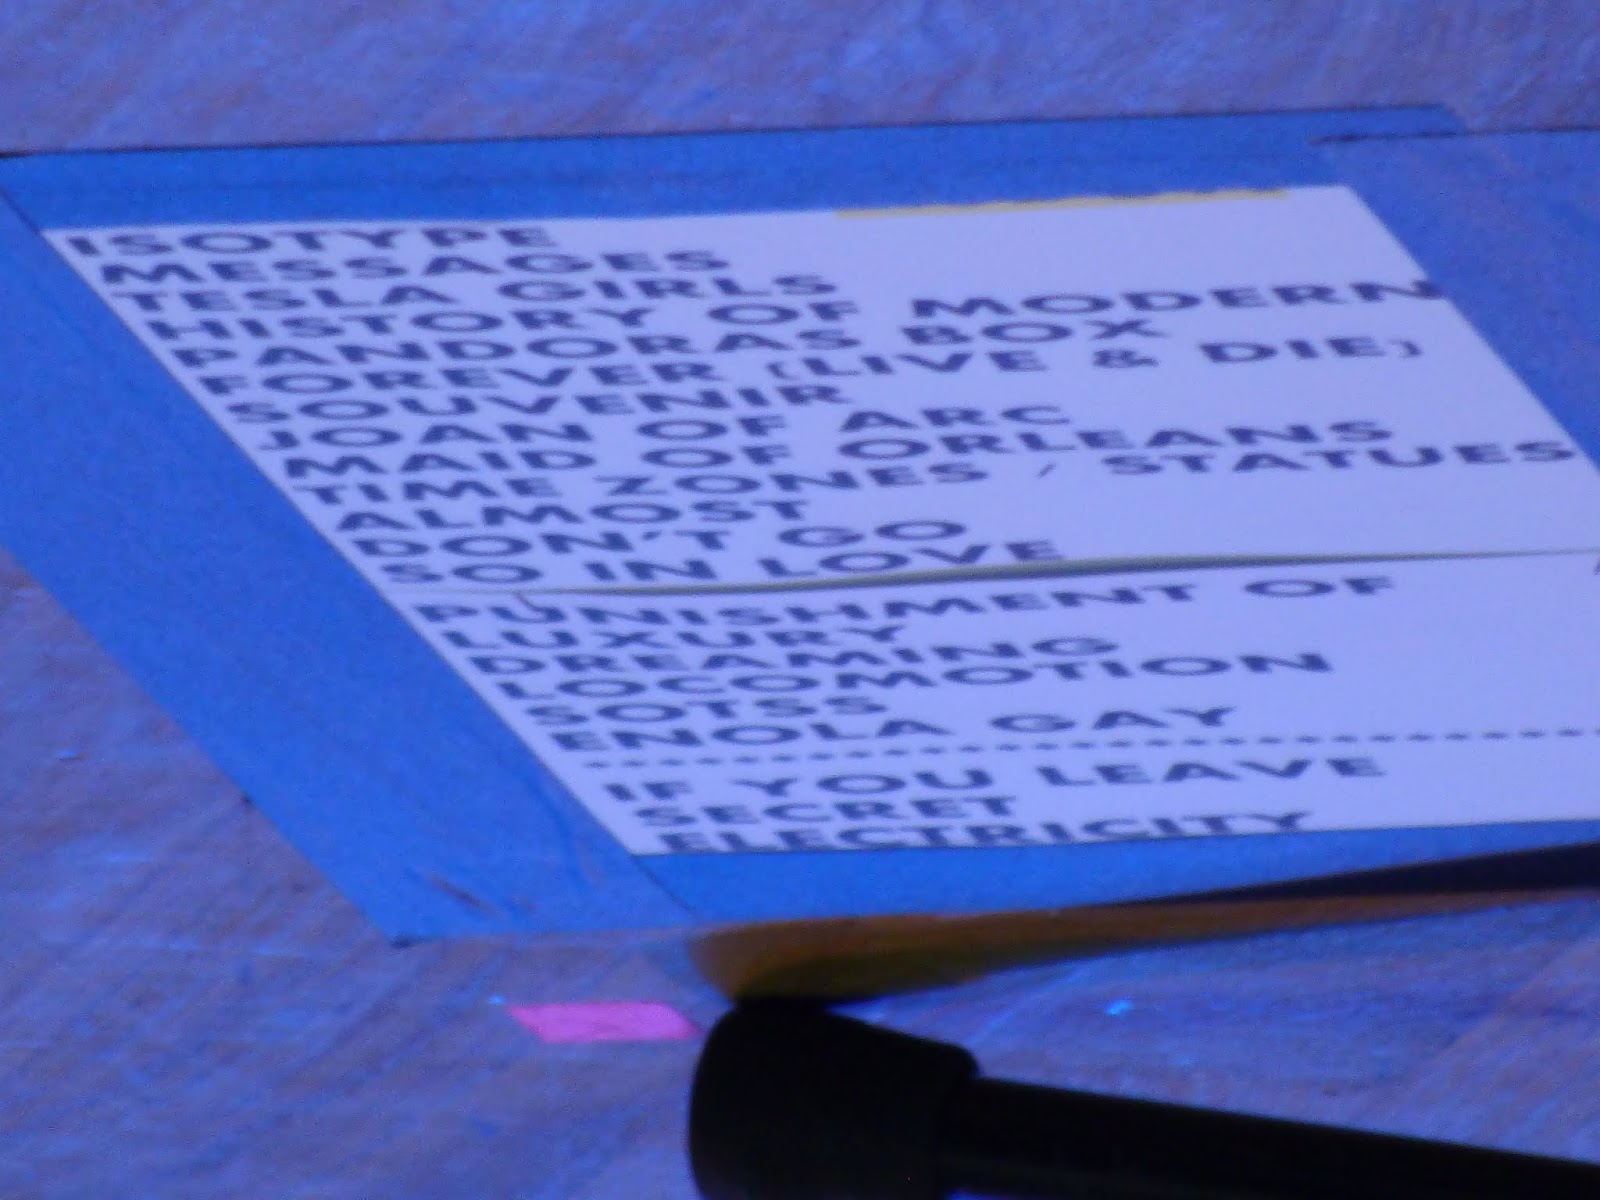 ISOTYPE
MESSAGES
TESLA GIRLS
HISTORY OF MODERN
PANDORAS BOX
FOREVER (LIVE & DIE)
SOUVENIR
JOAN OF ARC
MAID OF ORLEANS
TIME ZONES / STATUES
ALMOST
DON'T GO
SO IN LOVE
PUNISHMENT OF
LUXURY
DREAMING
LOCOMOTION
SOTSS
ENOLA GAY
IF YOU LEAVE
SECRET
ELECTRICITY